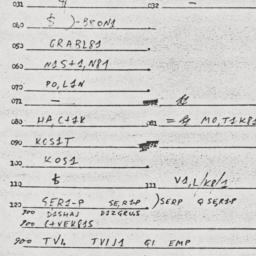 031 032 —
040 $ )-BEON1
050 GRABL81
060 N1S+1,N81
070 PO,L1N
071 —
080 HA,C+1K 081 = MO,T1K81
090 KCS1T
100 KOS1
110 $ 111 V1,L/K8/1
120 SER1-P SE,R1P )SERP QSER1P
900 D1SHAJ D1ZGRUS
900 C+VEK81S
900 TVL TV1J1 G1 EMP